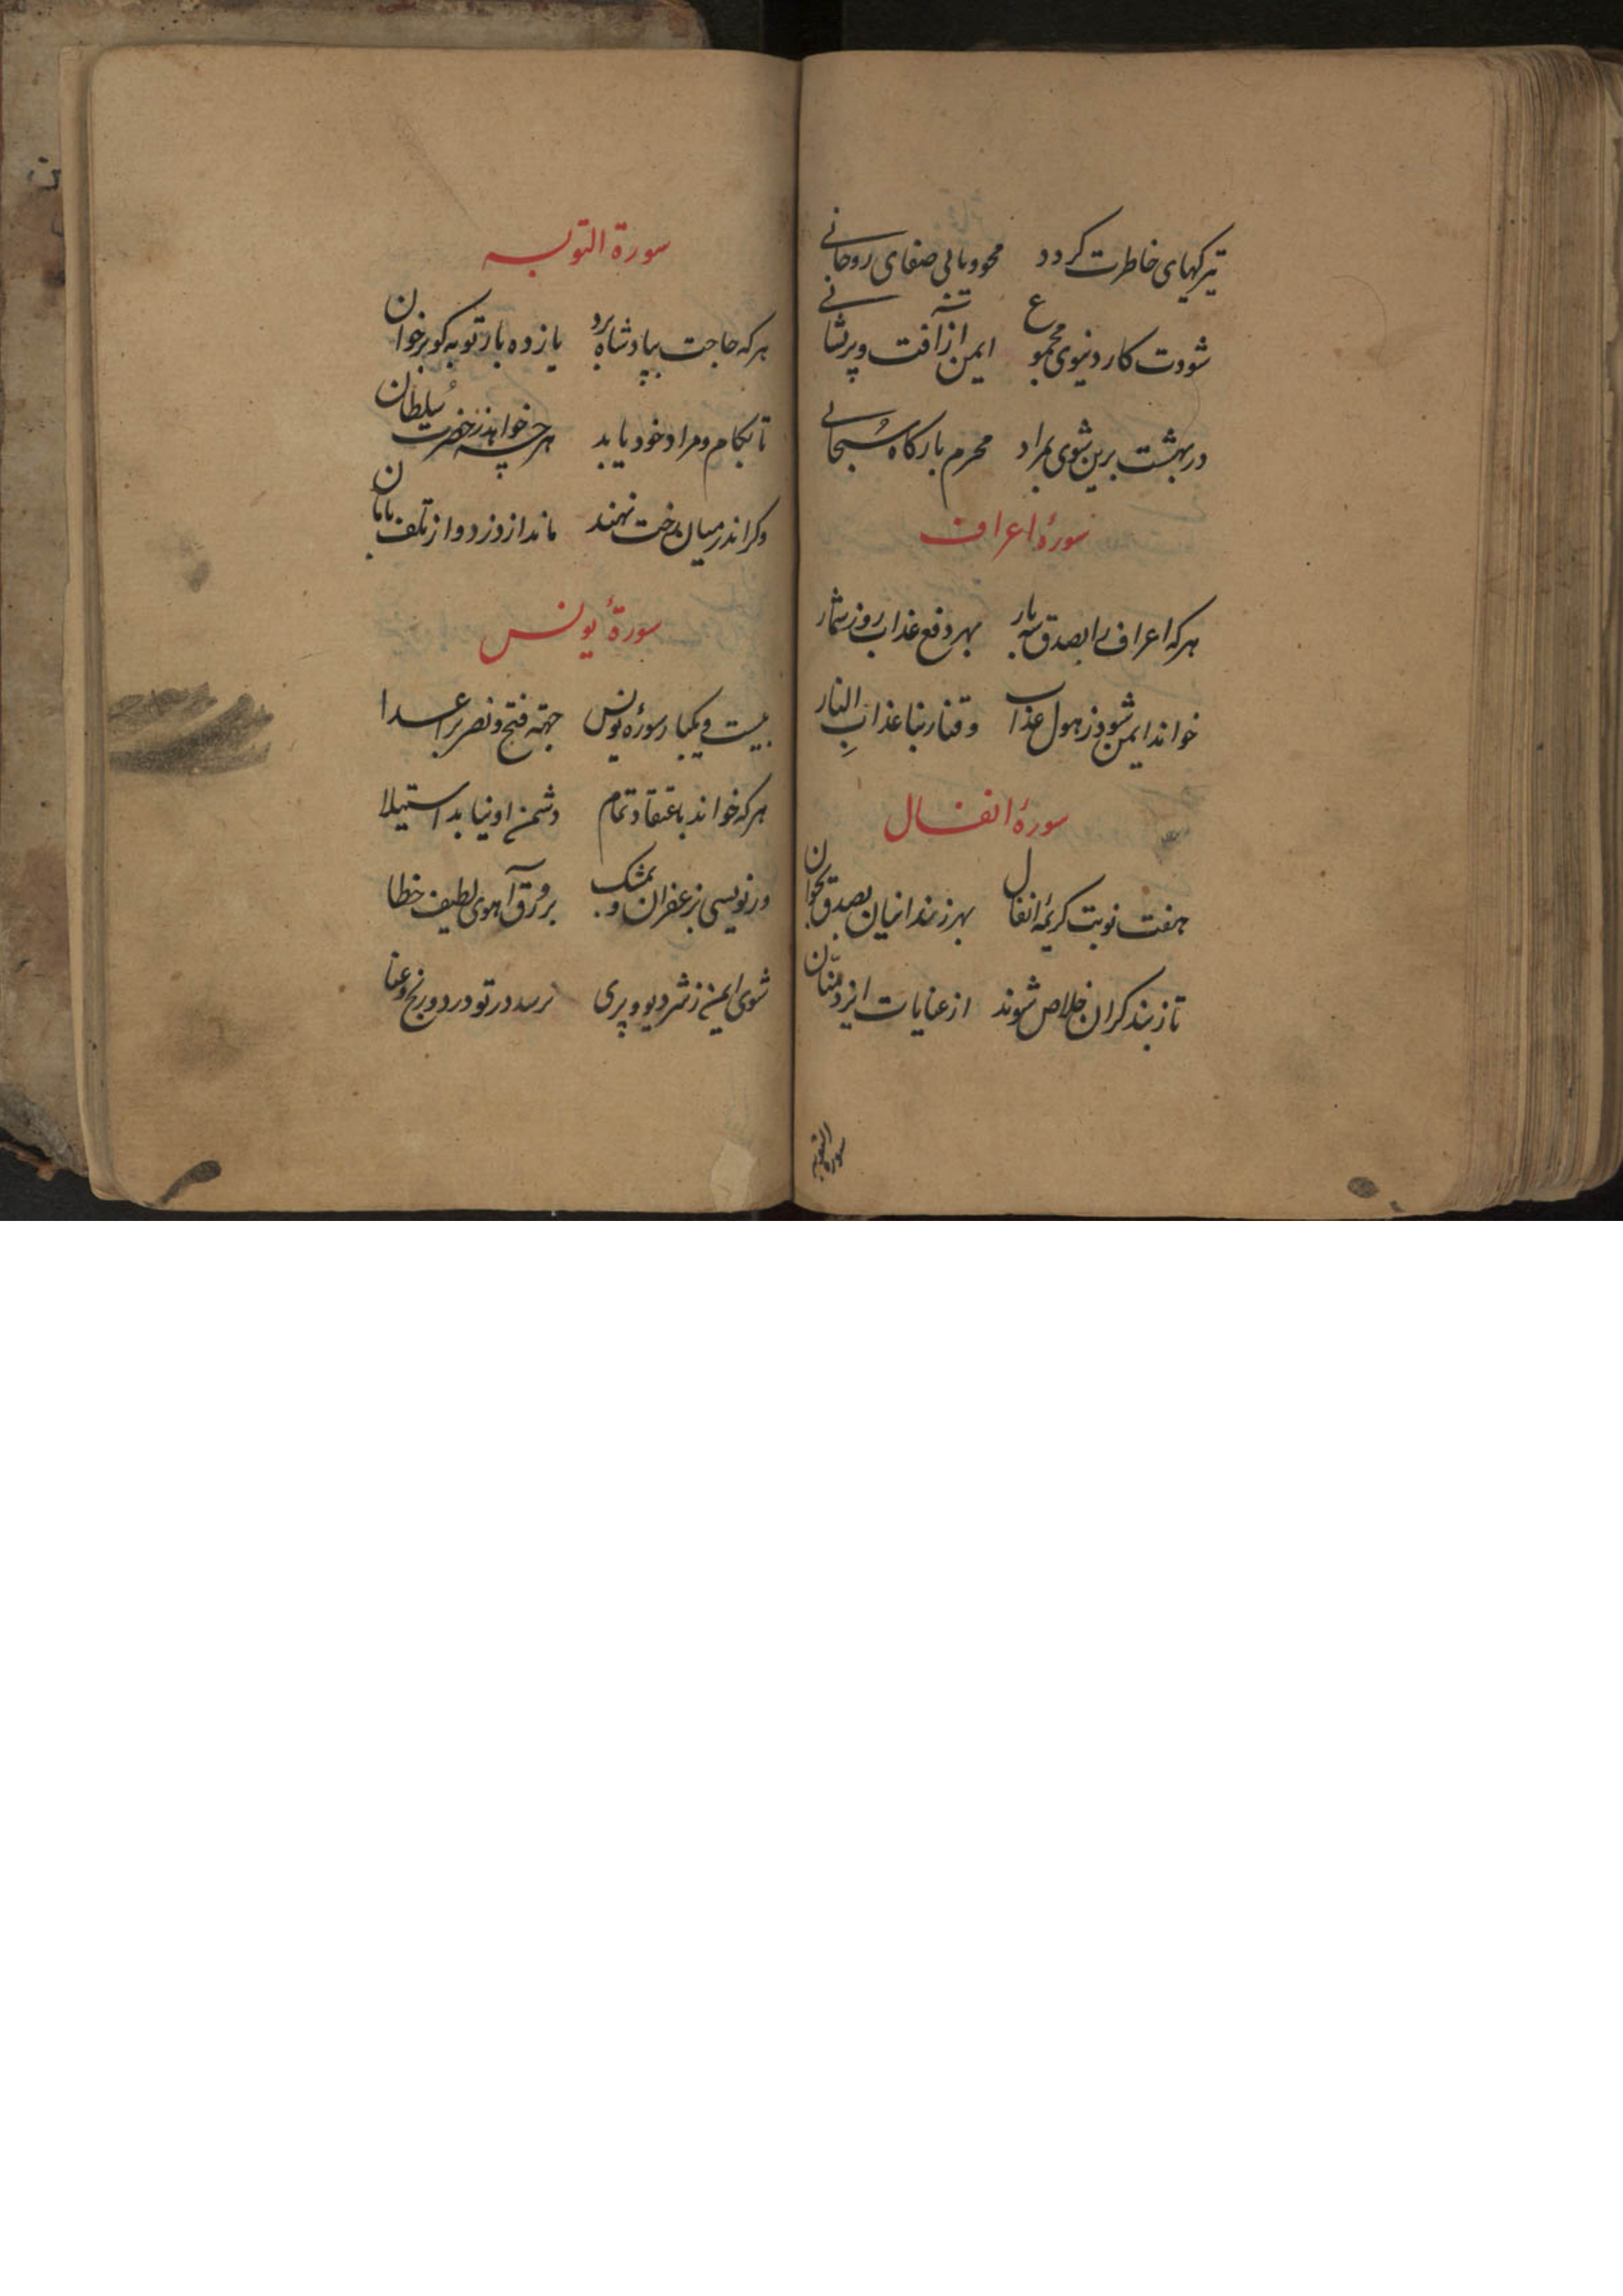 تیرکیهای خاطرت کردد محو ویابی صفای روحانی
شودت کار دنیوی مجموع ایمن از آفت وپریشانی
در بهشت برین شوی بمراد محرم بارکاه سُبحانی
سورهٔ اعراف
هرکه اعراف را بصدق سه بار بهر دفع عذاب روز شمار
خواند ایمن شود ز هول عذاب وقنا ربنا عذابِ النار
سورهٔ انفال
هفت نوبت کریمهٔ انفال بهر زندانیان بصدق بخوان
تا ز بند کران خلاص شوند از عنایات ایزد منّان
سورة التوبه
سورة التوبه
هرکه حاجت بپادشاه برد یازده بار توبه کو برخوان
تا بکام ومراد خود یابد هرچه خواهد ز حضرت سُلطان
وکر اندر میان رخت نهند ماند از دزد و از تلف بامان
سورهٔ یونس
بیست ویکبار سورهٔ یونس جهته فتح ونصر بر اعدا
هرکه خواند باعتقاد تمام دشمن او نیابد استیلا
ور نویسی بزعفران و بمشک بر ورق آهوی لطیف خطا
شوی ایمن ز شر دیو وپری نرسد در تو درد ورنج وعنا